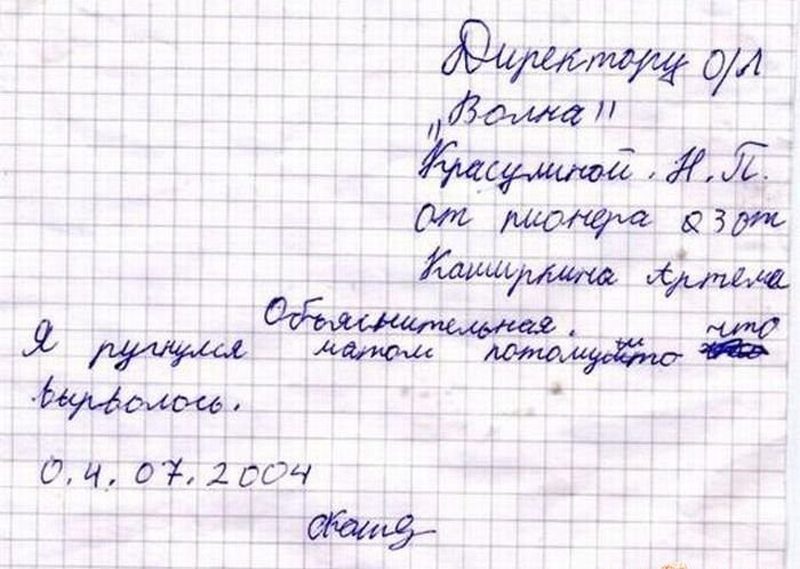 Директору О/Л
„Волна"
Красулиной. Н.П.
от пионера 23 от
Каширкина Артема
Объяснительная.
Я ругнулся матом потомуйто что
вырволось.
0.4.07.2004